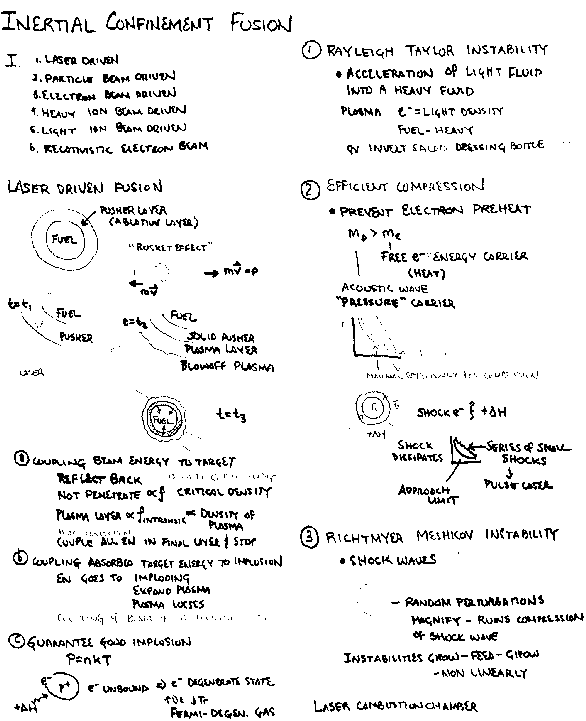 INERTIAL CONFINEMENT FUSION
I. 1. LASER DRIVEN
2. PARTICLE BEAM DRIVEN
3. ELECTRON BEAM DRIVEN
4. HEAVY ION BEAM DRIVEN
5. LIGHT ION BEAM DRIVEN
6. RELATIVISTIC ELECTRON BEAM
LASER DRIVEN FUSION
PUSHER LAYER
(ABLATIVE LAYER)
FUEL
"ROCKET EFFECT"
mv
mv = P
t=t1
FUEL
PUSHER
LASER
t=t2
FUEL
SOLID PUSHER
PLASMA LAYER
BLOWOFF PLASMA
FUEL
t=t3
a COUPLING BEAM ENERGY TO TARGET
REFLECT BACK
NOT PENETRATE ∝ρ CRITICAL DENSITY
PLASMA LAYER ∝ρ INTRINSIC = DENSITY OF
PLASMA
COUPLE ALL EN IN FINAL LAYER & STOP
b COUPLING ABSORBED TARGET ENERGY TO IMPLOSION
EN GOES TO IMPLODING
EXPAND PLASMA
PLASMA LOSSES
c GUARANTEE GOOD IMPLOSION
P=nkT
e-
P+
+ΔH
e- UNBOUND ⇒ e- DEGENERATE STATE
FERMI-DEGEN. GAS
1 RAYLEIGH TAYLOR INSTABILITY
• ACCELERATION OF LIGHT FLUID
INTO A HEAVY FLUID
PLASMA e- = LIGHT DENSITY
FUEL - HEAVY
INVERT SALAD DRESSING BOTTLE
2 EFFICIENT COMPRESSION
• PREVENT ELECTRON PREHEAT
Mp > Me
FREE e- ENERGY CARRIER
(HEAT)
ACOUSTIC WAVE
"PRESSURE" CARRIER
+ΔH
SHOCK e- } +ΔH
SHOCK
DISSIPATES
SERIES OF SMALL
SHOCKS
PULSE LASER
APPROACH
LIMIT
3 RICHTMYER MESHKOV INSTABILITY
• SHOCK WAVES
- RANDOM PERTURBATIONS
MAGNIFY - RUINS COMPRESSION
OF SHOCK WAVE
INSTABILITIES GROW - FEED - GROW
- NON LINEARLY
LASER COMBUSTION CHAMBER